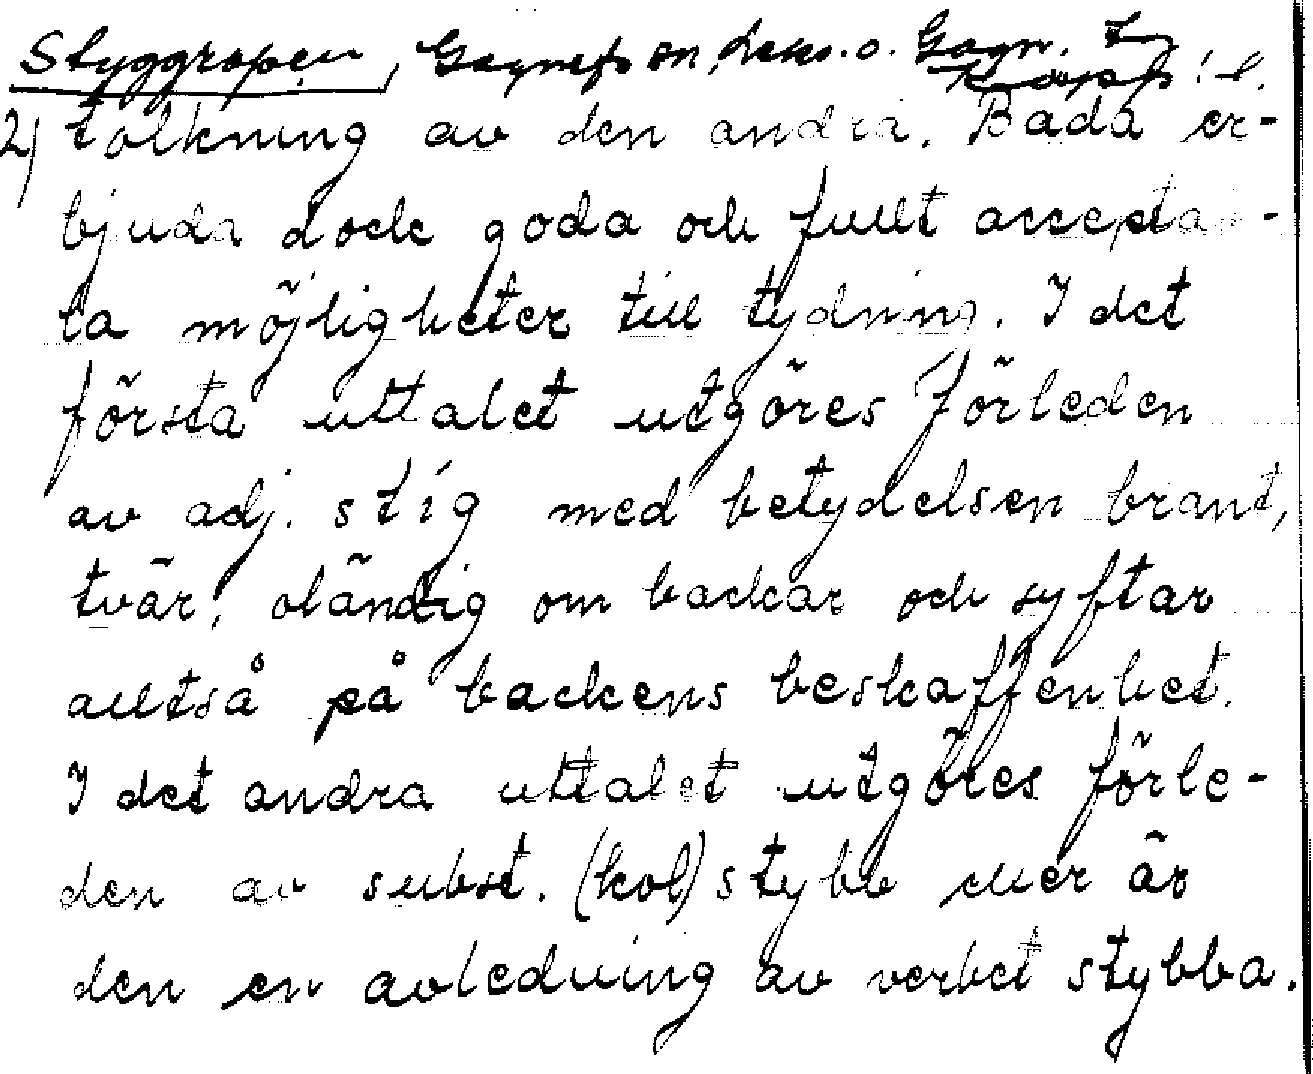 Styggropen, Gagnefs sn, Leks. o. Gagn.
2) tolkning av den andra. Båda er-
bjuda dock goda och fullt accepta-
la möjligheter till tydning. I det
första uttalet utgöres förleden
av adj. stig med betydelsen brant,
tvär, oländig om backar och syftar
alltså på backens beskaffenhet.
I det andra uttalet utgöres förle-
den av subst. (kol)stybb eller är
den en avledning av verbet stybba.